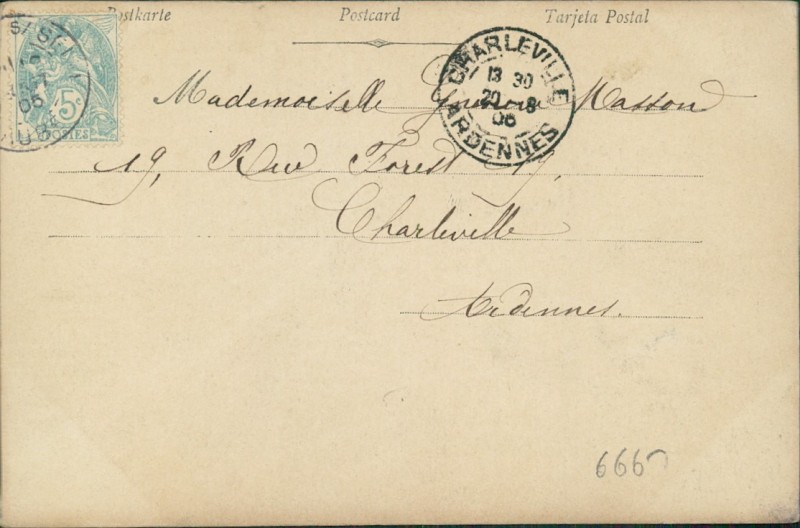 Postkarte Postcard Tarjeta Postal
5c
POSTES
06
AUBE
CHARLEVILLE
13 30
20 8
06
ARDENNES
Mademoiselle Masson
19, Rue Forest 19,
Charleville
Ardennes.
6665